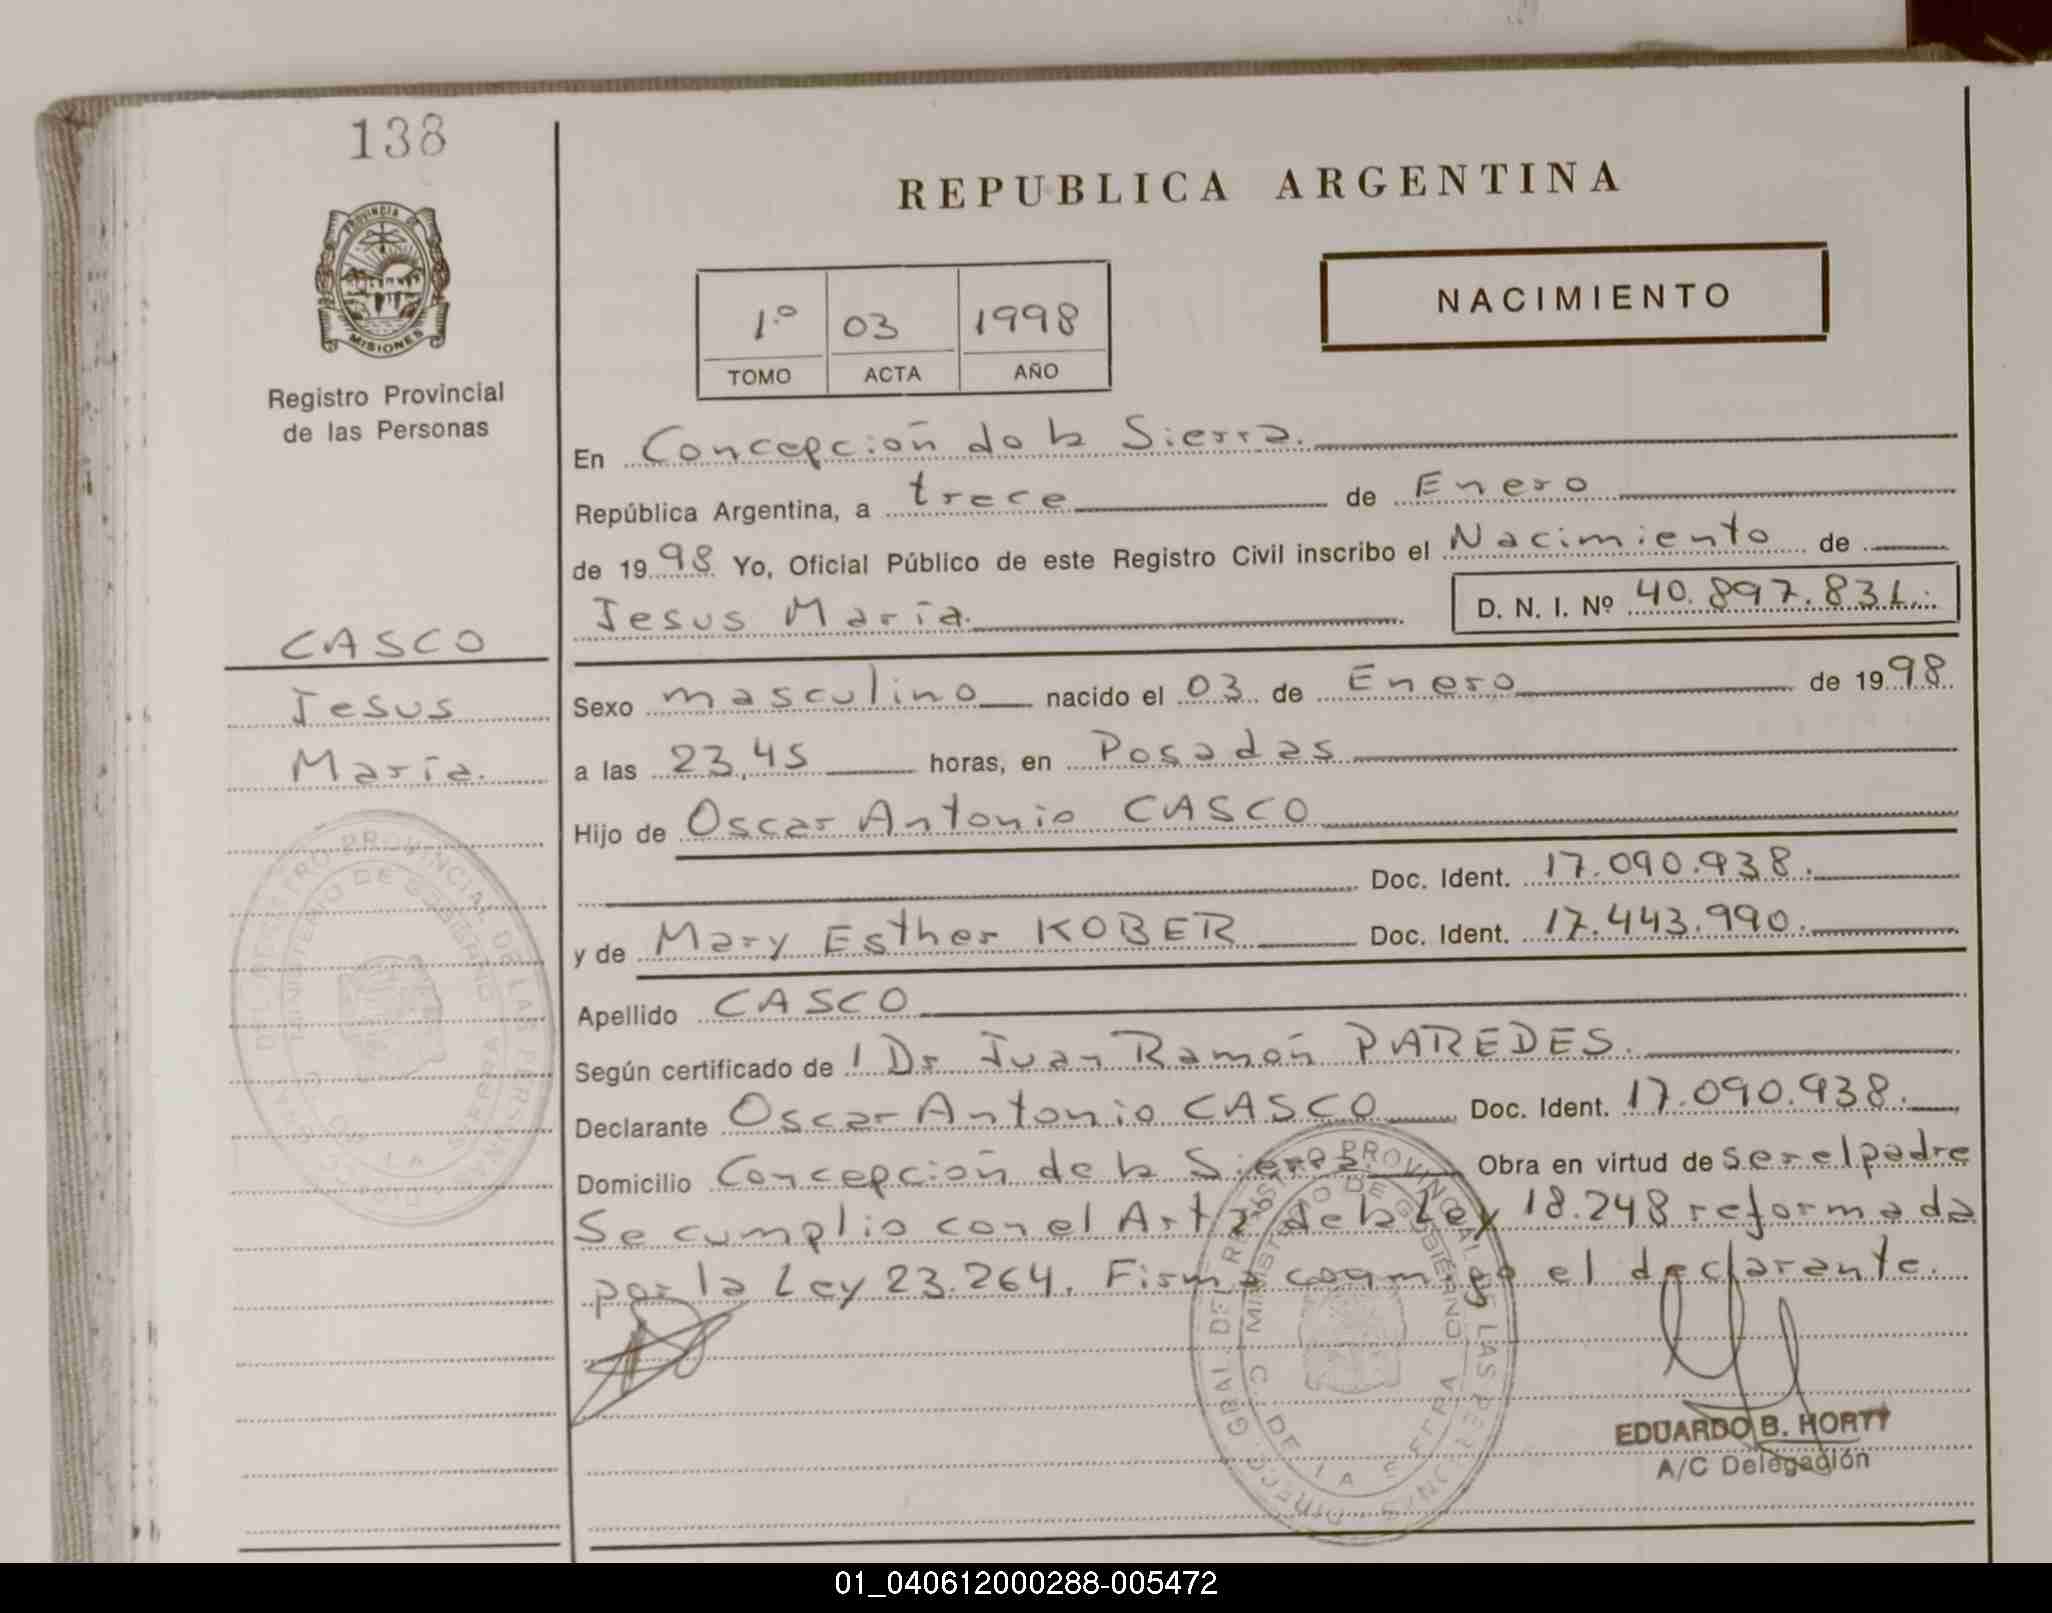 138
PROVINCIA DE
MISIONES
Registro Provincial
de las Personas
CASCO
Jesus
María.
REPUBLICA ARGENTINA
NACIMIENTO
1º 03 1998
TOMO ACTA AÑO
En Concepción de la Sierra.
República Argentina, a trece de Enero
de 1998 Yo, Oficial Público de este Registro Civil inscribo el Nacimiento de
Jesus María. D. N. I. Nº 40.897.831.
Sexo masculino nacido el 03 de Enero de 1998.
a las 23,45 horas, en Posadas
Hijo de Oscar Antonio CASCO
Doc. Ident. 17.090.938.
y de Mary Esther KOBER Doc. Ident. 17.443.990.
Apellido CASCO
Según certificado de l Dr Juan Ramón PAREDES.
Declarante Oscar Antonio CASCO Doc. Ident. 17.090.938.
Domicilio Concepción de la Sierra. Obra en virtud de ser el padre
Se cumplio con el Art 2 de la Ley 18.248 reformada
por la Ley 23.264. Firma conmigo el declarante.
EDUARDO B. HORTT
A/C Delegación
01_040612000288-005472